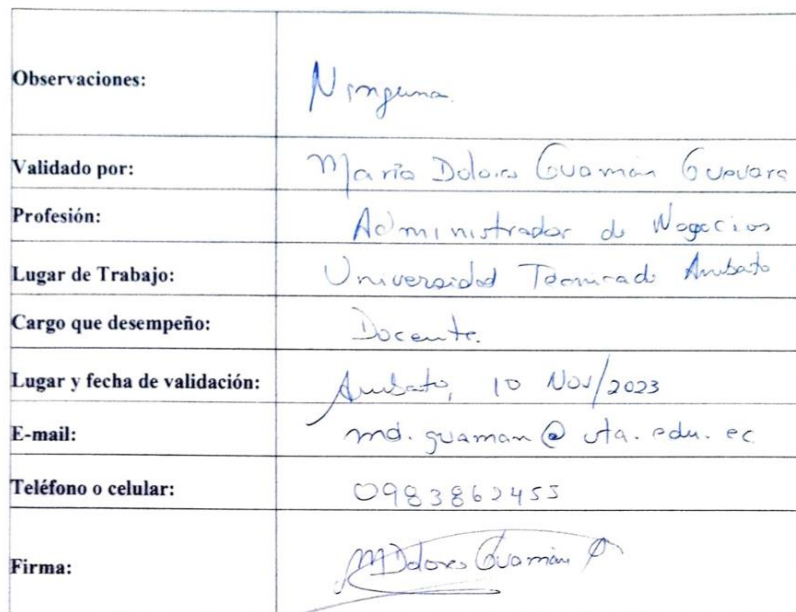 Observaciones: Ninguna.
Validado por: María Dolores Guamán Guevara
Profesión: Administrador de Negocios
Lugar de Trabajo: Universidad Tecnicade Ambato
Cargo que desempeño: Docente.
Lugar y fecha de validación: Ambato, 10 Nov/2023
E-mail: md.guaman@uta.edu.ec
Teléfono o celular:
Firma: MDolores Guamán